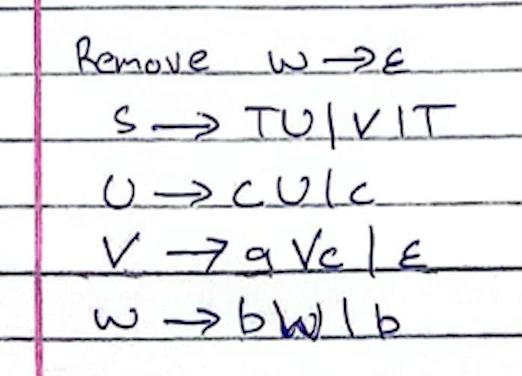 Remove W → ε
S → TU | V | T
U → cU | c
V → aVc | ε
W → bW | b